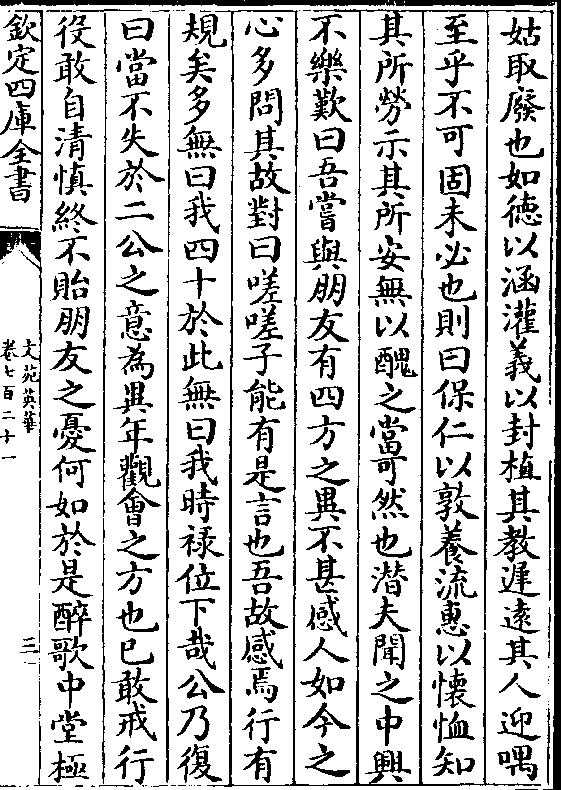 姑取廢也如徳以涵灌義以封植其教遲遠其人迎喁
至乎不可固未必也則曰保仁以敦養流惠以懐恤知
其所勞示其所安無以醜之當可然也潜夫聞之中興
不樂歎曰吾嘗與朋友有四方之異不甚感人如今之
心多問其故對曰嗟嗟子能有是言也吾故感焉行有
規矣多無曰我四十於此無曰我時禄位下哉公乃復
曰當不失於二公之意為異年觀會之方也已敢戒行
役敢自清慎終不貽朋友之憂何如於是醉歌中堂極
欽定四庫全書
文苑英華
卷七百二十一
三